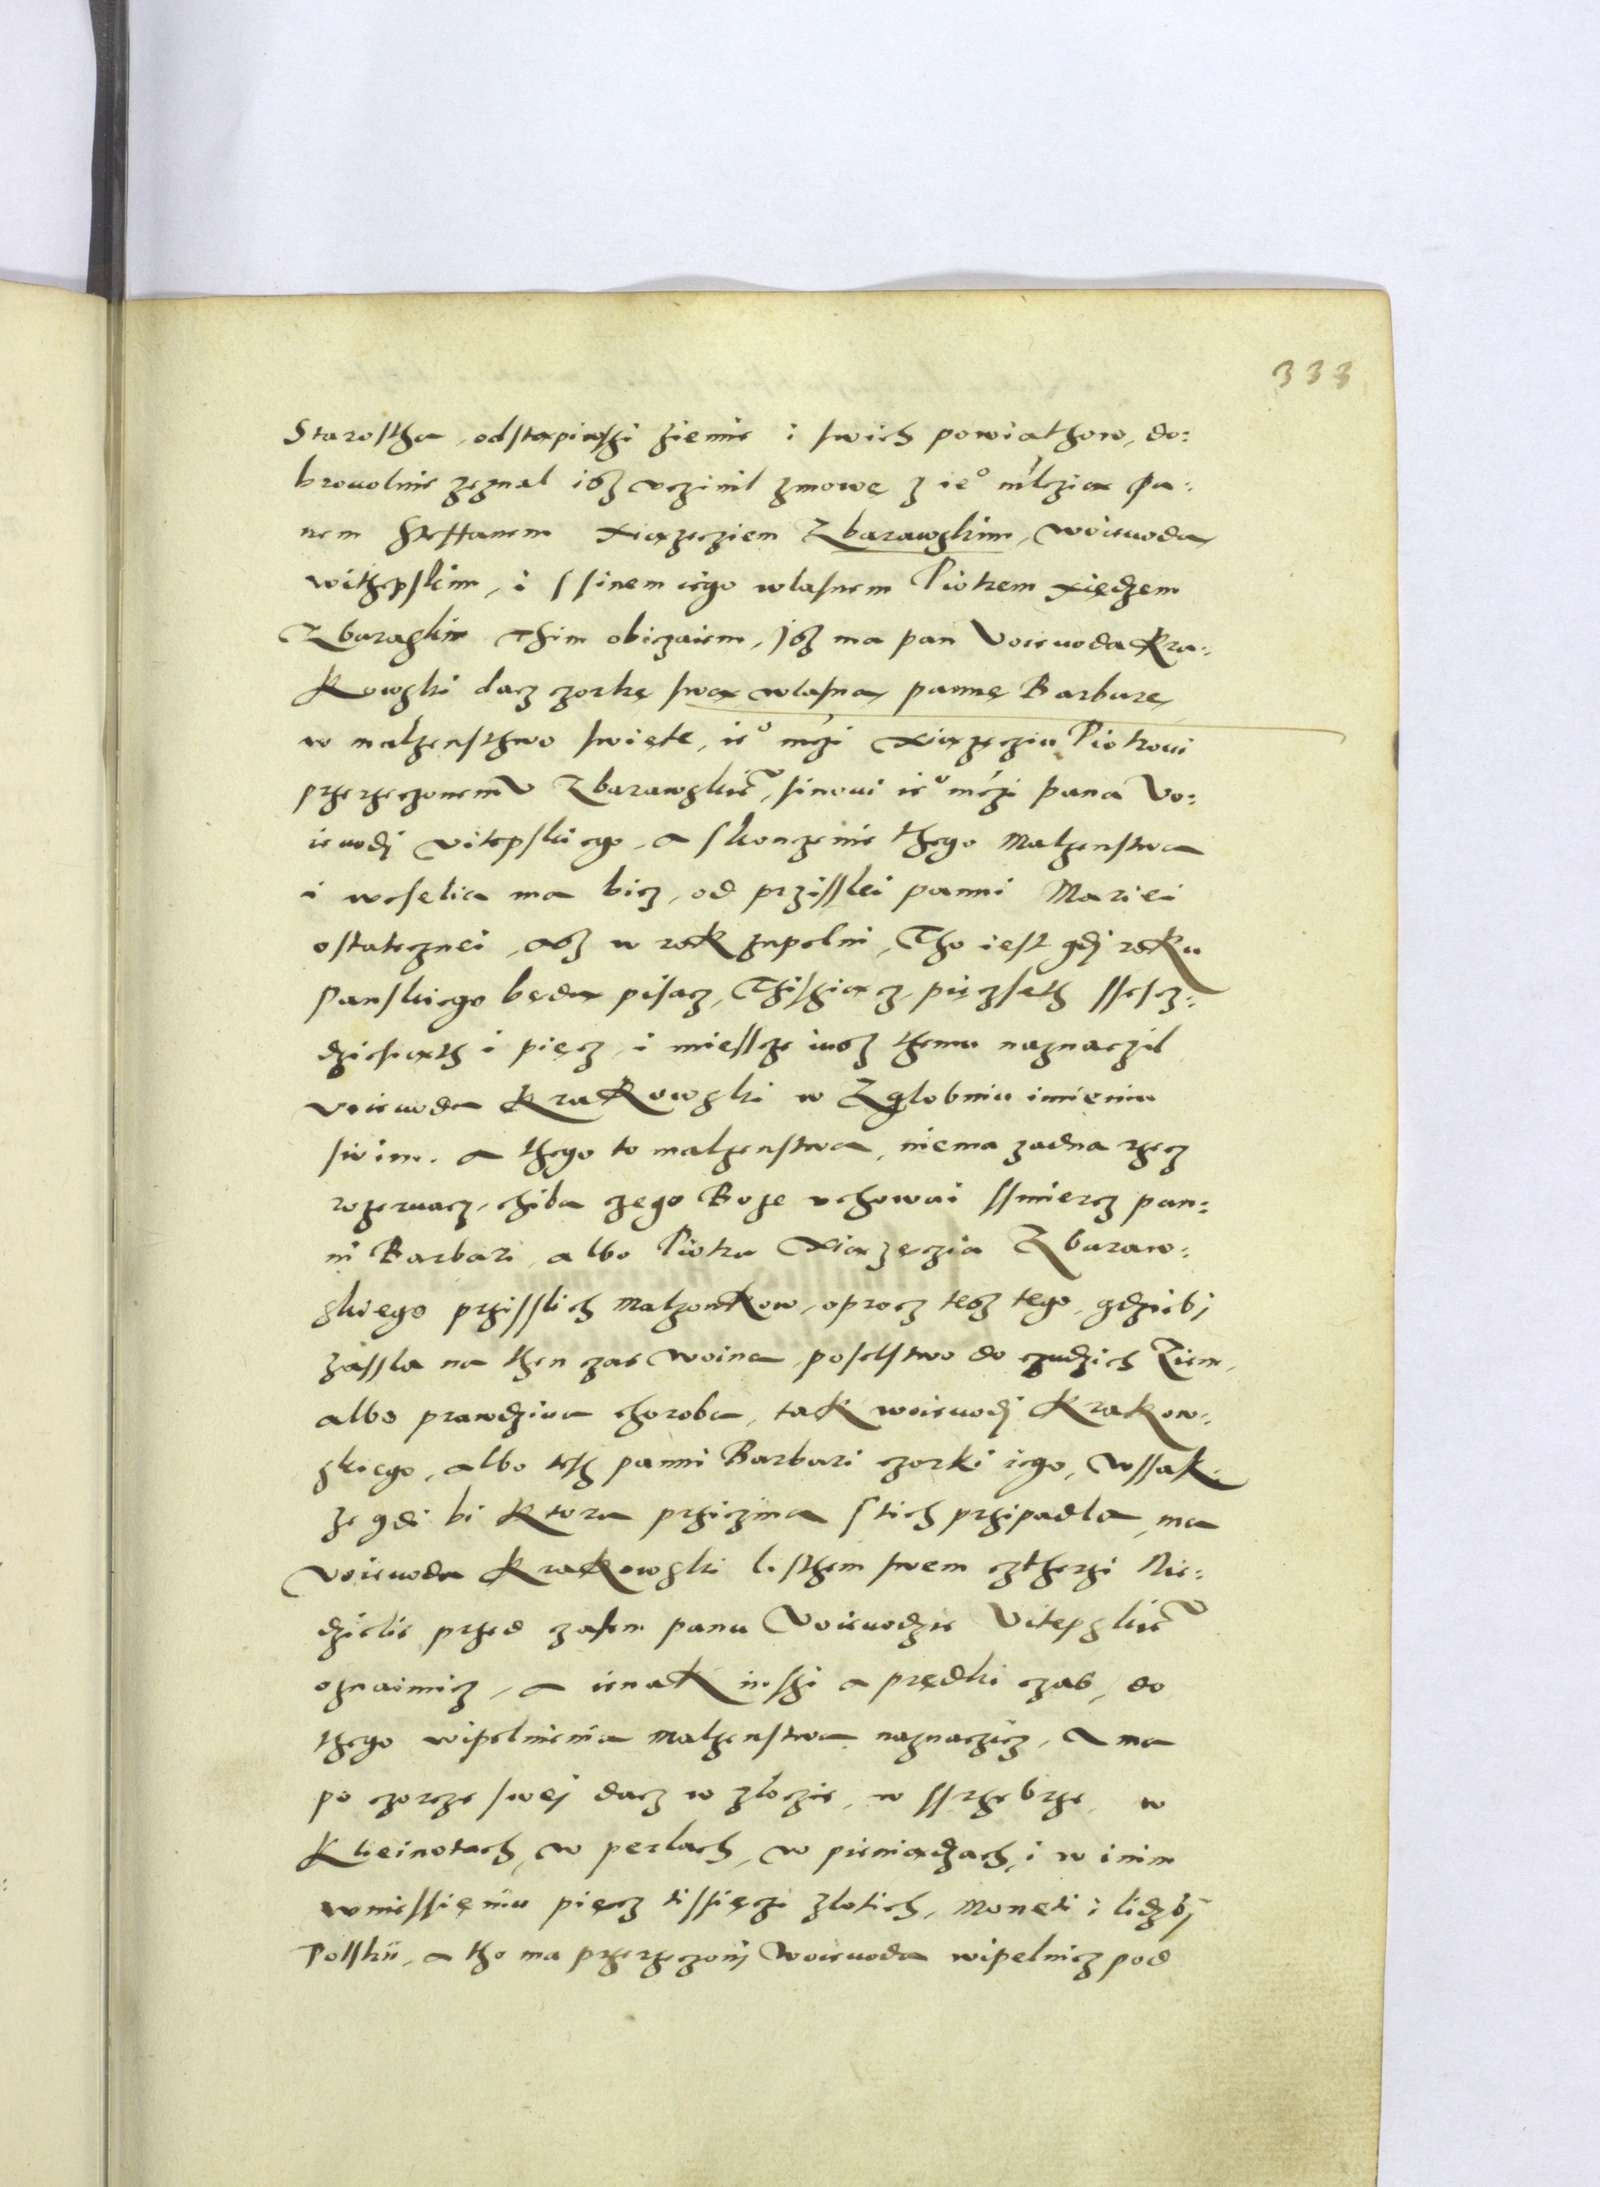 333
Starostha, odstapiwszi ziemie i swich powiathow, do:
browolnie zeznal isz vczinil zmowę z ieo mlcziax Pa:
nem Steffanem xiązęcziem Zbarawskim, woiewodą
withepskim, i ssinem iego wlasnem Piotrem xiędzem
Zbaraskim Thim obiczaiem, Isz ma pan Voiewoda Kra:
kowski dacz czorkę swą wlasną pannę Barbarę,
w malzensthwo swięte, ieo mczi xiązęcziu Piotrowi
przerzeczonemu Zbarawskieu, sinowi ieo mczi pana Vo:
iewodj vitepskiego, a skonczenie thego Malzenstwa
i weselia ma bicz, od przisslei panni Mariei
ostatecznei, asz w rok zupelni, Tho iest gdj roku
Panskiego będą pisacz, Thisziącz, pięczseth ssescz:
dziesiąth i pięcz, i miessce iusz themu naznaczil
voiewoda Krakowski w Zglobniu imieniu
swim. a thego to malzenstwa, niema zadna rzecz
rozerwacz, chiba czego Boze vchowai ssmiercz pan:
ni Barbari, albo Piotra xiązęczia Zbaraw:
skiego przisslich Malzonkow, oprocz tesz tego, gdziebj
zassla na then czas woina, poselstwo do czudzich Ziem,
albo prawdziwa choroba, tak woiewodj Krakow:
skiego, albo tesz panni Barbari czorki iego, wssak:
ze gdi bi ktora prziczina stich przipadla, ma
Voiewoda Krakowski listhem swem cztherzi Nie:
dzielie przed czasem panu Voiewodzie Vitepskieu
oznaimicz, a ienak inszi a prędki czas, do
thego wipelnienia malzenstwa naznaczicz, A ma
po czorcze swej dacz w zloczie, w ssrzebrze, w
Klieinotach, w perlach, w pieniądzach, i w inim
wniessieniu pięcz tissięczi zlotich, Moneti i lidzbj
Polskii, a tho ma przerzeczonj Woiewoda wipelnicz pod